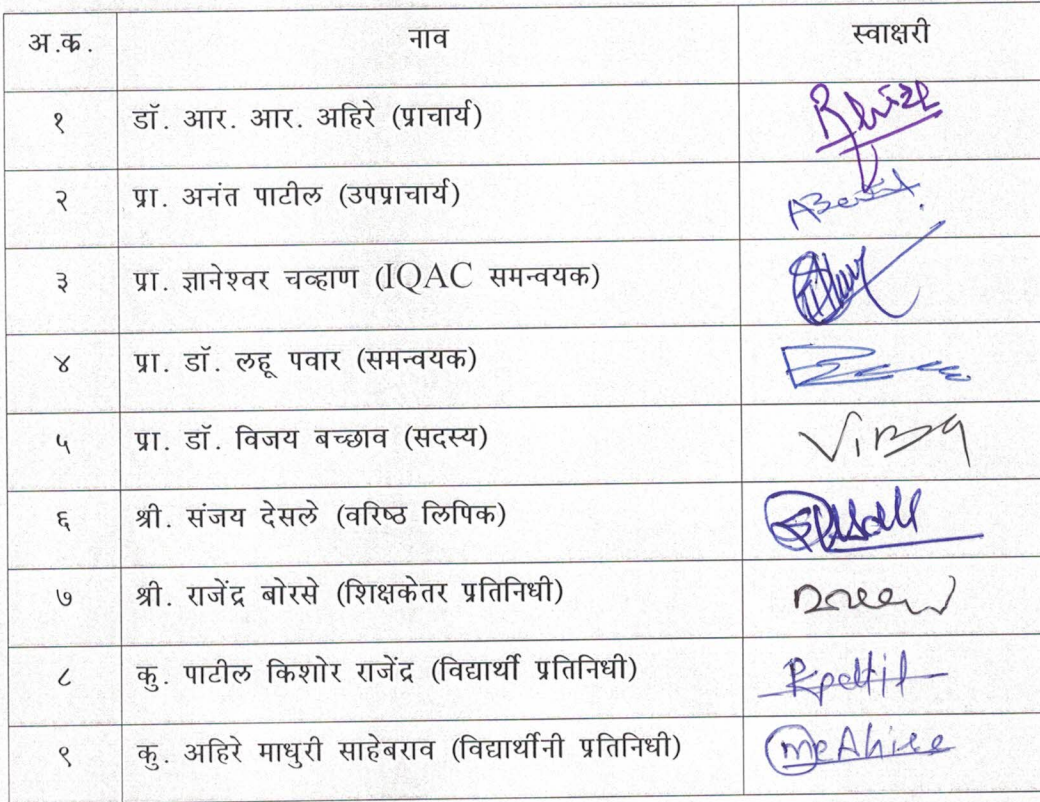 अ.क. नाव स्वाक्षरी
१ डॉ. आर. आर. अहिरे (प्राचार्य)
२ प्रा. अनंत पाटील (उपप्राचार्य)
३ प्रा. ज्ञानेश्वर चव्हाण (IQAC समन्वयक)
४ प्रा. डॉ. लहू पवार (समन्वयक)
५ प्रा. डॉ. विजय बच्छाव (सदस्य)
६ श्री. संजय देसले (वरिष्ठ लिपिक)
७ श्री. राजेंद्र बोरसे (शिक्षकेतर प्रतिनिधी)
८ कु. पाटील किशोर राजेंद्र (विद्यार्थी प्रतिनिधी)
९ कु. अहिरे माधुरी साहेबराव (विद्यार्थीनी प्रतिनिधी)